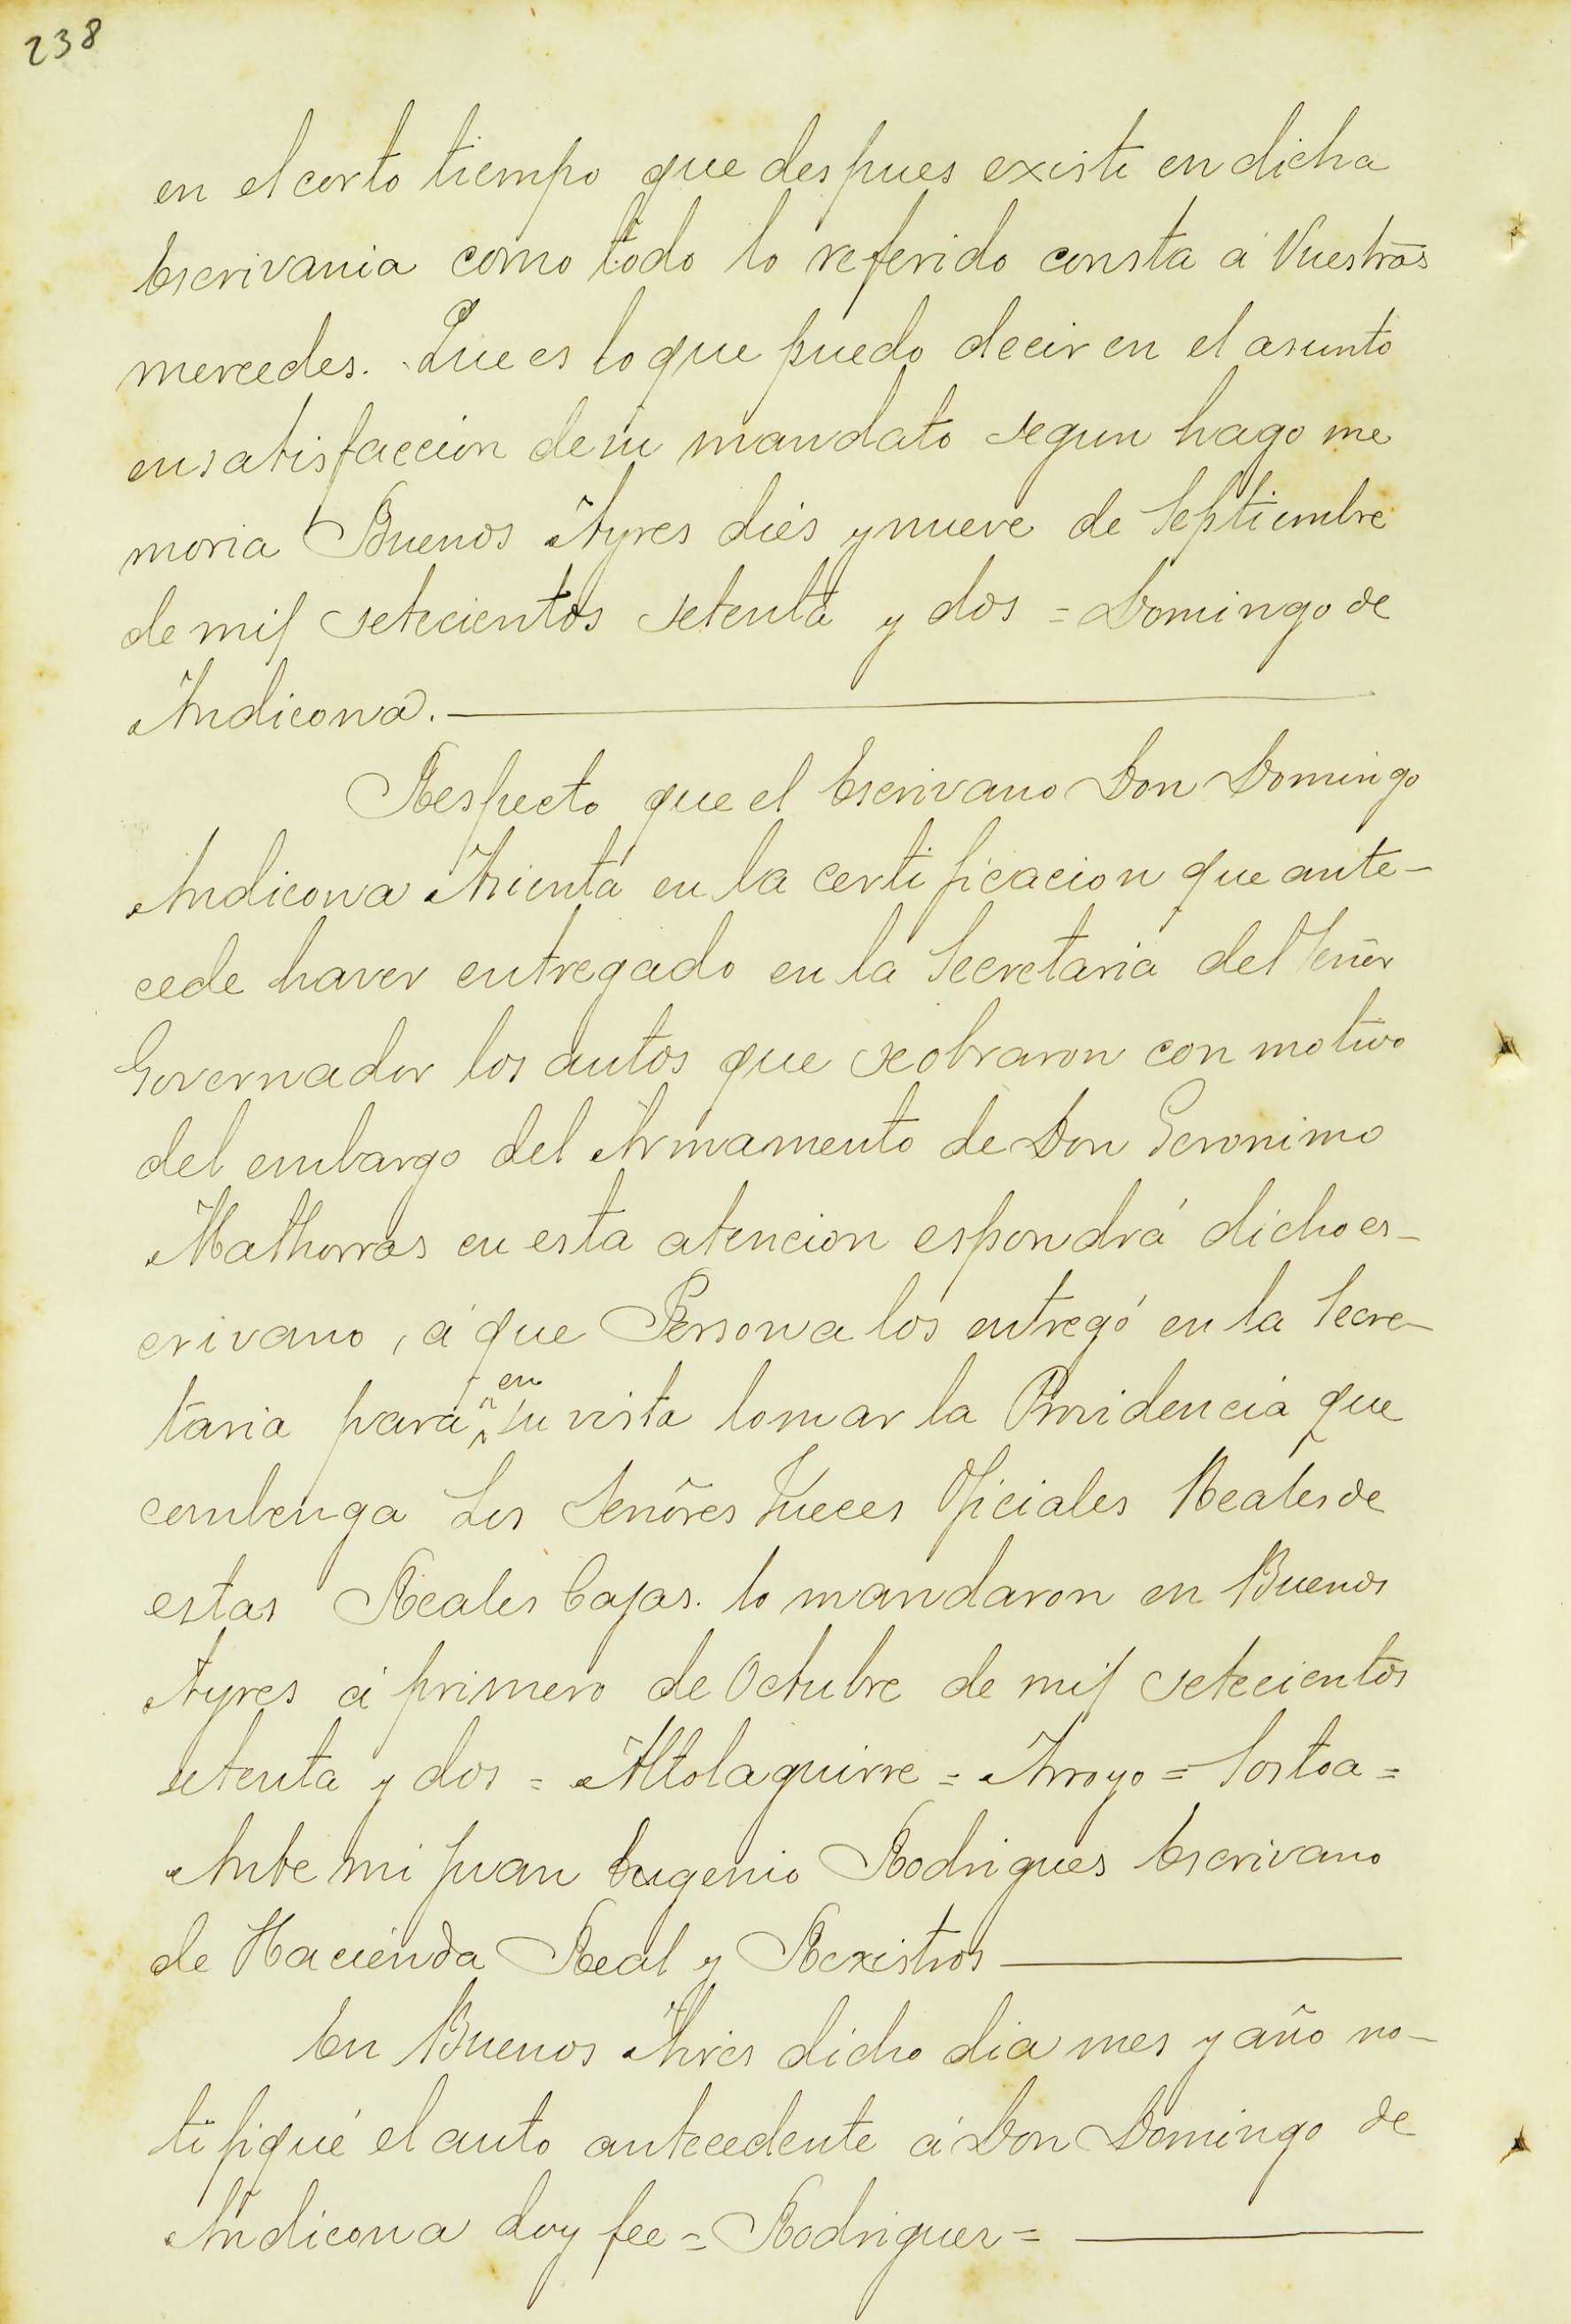 238
en el corto tiempo que despues existi en dicha
Escrivania como todo lo referido consta á Vuestras
mercedes. Que es lo que puedo decir en el asunto
en satisfaccion de su mandato segun hago me
moria Buenos Ayres diés y nueve de Septiembre
de mil setecientos setenta y dos = Domingo de
Andicona.
Respecto que el Escrivano Don Domingo
Andicona Asienta en la certificacion que ante-
cede haver entregado en la Secretaria del Señor
Governador los autos que se obraron con motivo
del embargo del Armamento de Don Geronimo
Mathorras en esta atencion espondrá dicho es-
crivano, á que Persona los entregó en la Secre-
taria para en su vista tomar la Providencia que
combenga Los Señores Jueces Oficiales Reales de
estas Reales Cajas. lo mandaron en Buenos
Ayres á primero de Octubre de mil setecientos
setenta y dos = Altolaguirre = Arroyo = Sostoa =
Ante mi Juan Eugenio Rodrigues Escrivano
de Hacienda Real y Rexistros
En Buenos Aires dicho dia mes y año no-
tifiqué el auto antecedente á Don Domingo de
Andicona doy fee = Rodriguez =